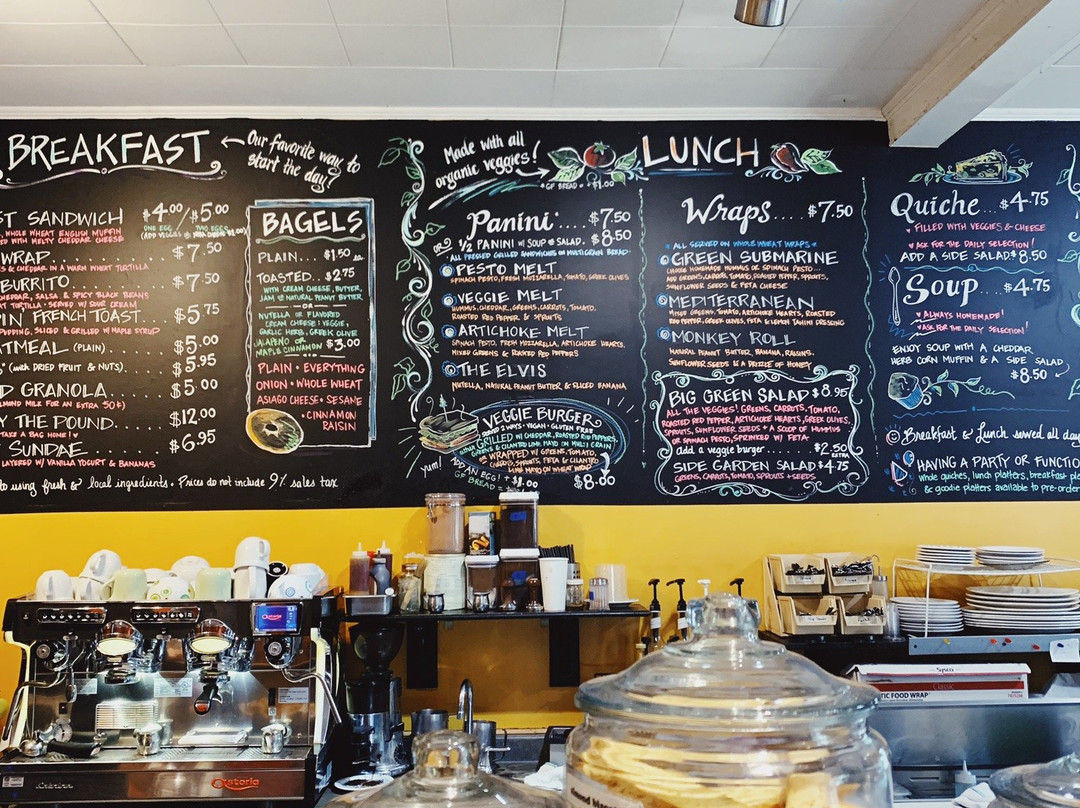 BREAKFAST
Our favorite way to
start the day!
ST SANDWICH $4.00/$5.00
ONE EGG TWO EGGS
, WHOLE WHEAT ENGLISH MUFFIN
ED WITH MELTY CHEDDAR CHEESE
WRAP. $7.50
S & CHEDDAR IN A WARM WHEAT TORTILLA
BURRITO. $7.50
CHEDDAR, SALSA & SPICY BLACK BEANS
RT TORTILLA · SERVED W/ SOUR CREAM
IN FRENCH TOAST... $5.75
PUDDING, SLICED & GRILLED W/ MAPLE SYRUP
ATMEAL (PLAIN)...... $5.00
(WITH DRIED FRUIT & NUTS)..... $5.95
D GRANOLA...... $5.00
ALMOND MILK FOR AN EXTRA 50¢)
Y THE POUND... $12.00
TAKE A BAG HOME!
SUNDAE...... $6.95
LAYERED W/ VANILLA YOGURT & BANANAS
to using fresh & local ingredients. Prices do not include 9% sales tax
BAGELS
PLAIN... $1.50 ea.
TOASTED.. $2.75
WITH CREAM CHEESE, BUTTER,
JAM or NATURAL PEANUT BUTTER
OR
NUTELLA OR FLAVORED
CREAM CHEESE: VEGGIE,
GARLIC HERB, GREEK OLIVE
JALAPEÑO OR
MAPLE CINNAMON $3.00
PLAIN · EVERYTHING
ONION · WHOLE WHEAT
ASIAGO CHEESE · SESAME
· CINNAMON
RAISIN
Made with all
organic veggies!
LUNCH
*GF BREAD = +$1.00
Panini... $7.50
OR 1/2 PANINI W/ SOUP or SALAD. $8.50
*ALL PRESSED GRILLED SANDWICHES ON MULTIGRAIN BREAD*
PESTO MELT
SPINACH PESTO, FRESH MOZZARELLA, TOMATO, GREEK OLIVES
VEGGIE MELT
HUMMUS, CHEDDAR, GREENS, CARROTS, TOMATO,
ROASTED RED PEPPER & SPROUTS
ARTICHOKE MELT
SPINACH PESTO, FRESH MOZZARELLA, ARTICHOKE HEARTS,
MIXED GREENS & ROASTED RED PEPPERS
THE ELVIS
NUTELLA, NATURAL PEANUT BUTTER & SLICED BANANA
VEGGIE BURGER
SERVED 2 WAYS · VEGAN · GLUTEN FREE
GRILLED W/ CHEDDAR, ROASTED RED PEPPERS,
GREENS & CILANTRO LIME MAYO ON MULTI GRAIN
or WRAPPED W/ GREENS, TOMATO,
CARROTS, SPROUTS, FETA & CILANTRO
LIME MAYO ON WHEAT WRAP
$8.00
yum!
ADD AN EGG! +$1.00
GF BREAD =
Wraps.... $7.50
* ALL SERVED ON WHOLE WHEAT WRAPS *
GREEN SUBMARINE
CHOOSE HOMEMADE HUMMUS OR SPINACH PESTO...
MIXED GREENS, CARROTS, TOMATO, ROASTED PEPPER, SPROUTS,
SUNFLOWER SEEDS & FETA CHEESE
MEDITERRANEAN
MIXED GREENS, TOMATO, ARTICHOKE HEARTS, ROASTED
RED PEPPER, GREEK OLIVES, FETA & LEMON TAHINI DRESSING
MONKEY ROLL
NATURAL PEANUT BUTTER, BANANA, RAISINS,
SUNFLOWER SEEDS & A DRIZZLE OF HONEY
BIG GREEN SALAD $8.95
ALL THE VEGGIES! GREENS, CARROTS, TOMATO,
ROASTED RED PEPPER, ARTICHOKE HEARTS, GREEK OLIVES,
SPROUTS, SUNFLOWER SEEDS + A SCOOP OF HUMMUS
OR SPINACH PESTO, SPRINKED W/ FETA
add a veggie burger....... $2.50 EXTRA
SIDE GARDEN SALAD $4.75
GREENS, CARROTS, TOMATO, SPROUTS + SEEDS
Quiche... $4.75
FILLED WITH VEGGIES & CHEESE
ASK FOR THE DAILY SELECTION!
ADD A SIDE SALAD $8.50
Soup.... $4.75
ALWAYS HOMEMADE!
ASK FOR THE DAILY SELECTION!
ENJOY SOUP WITH A CHEDDAR
HERB CORN MUFFIN & A SIDE SALAD
$8.50
Breakfast & Lunch served all day
HAVING A PARTY OR FUNCTIO
whole quiches, lunch platters, breakfast pl
& goodie platters available to pre-order
Astoria
Astoria
CLASSIC
TIC FOOD WRAP